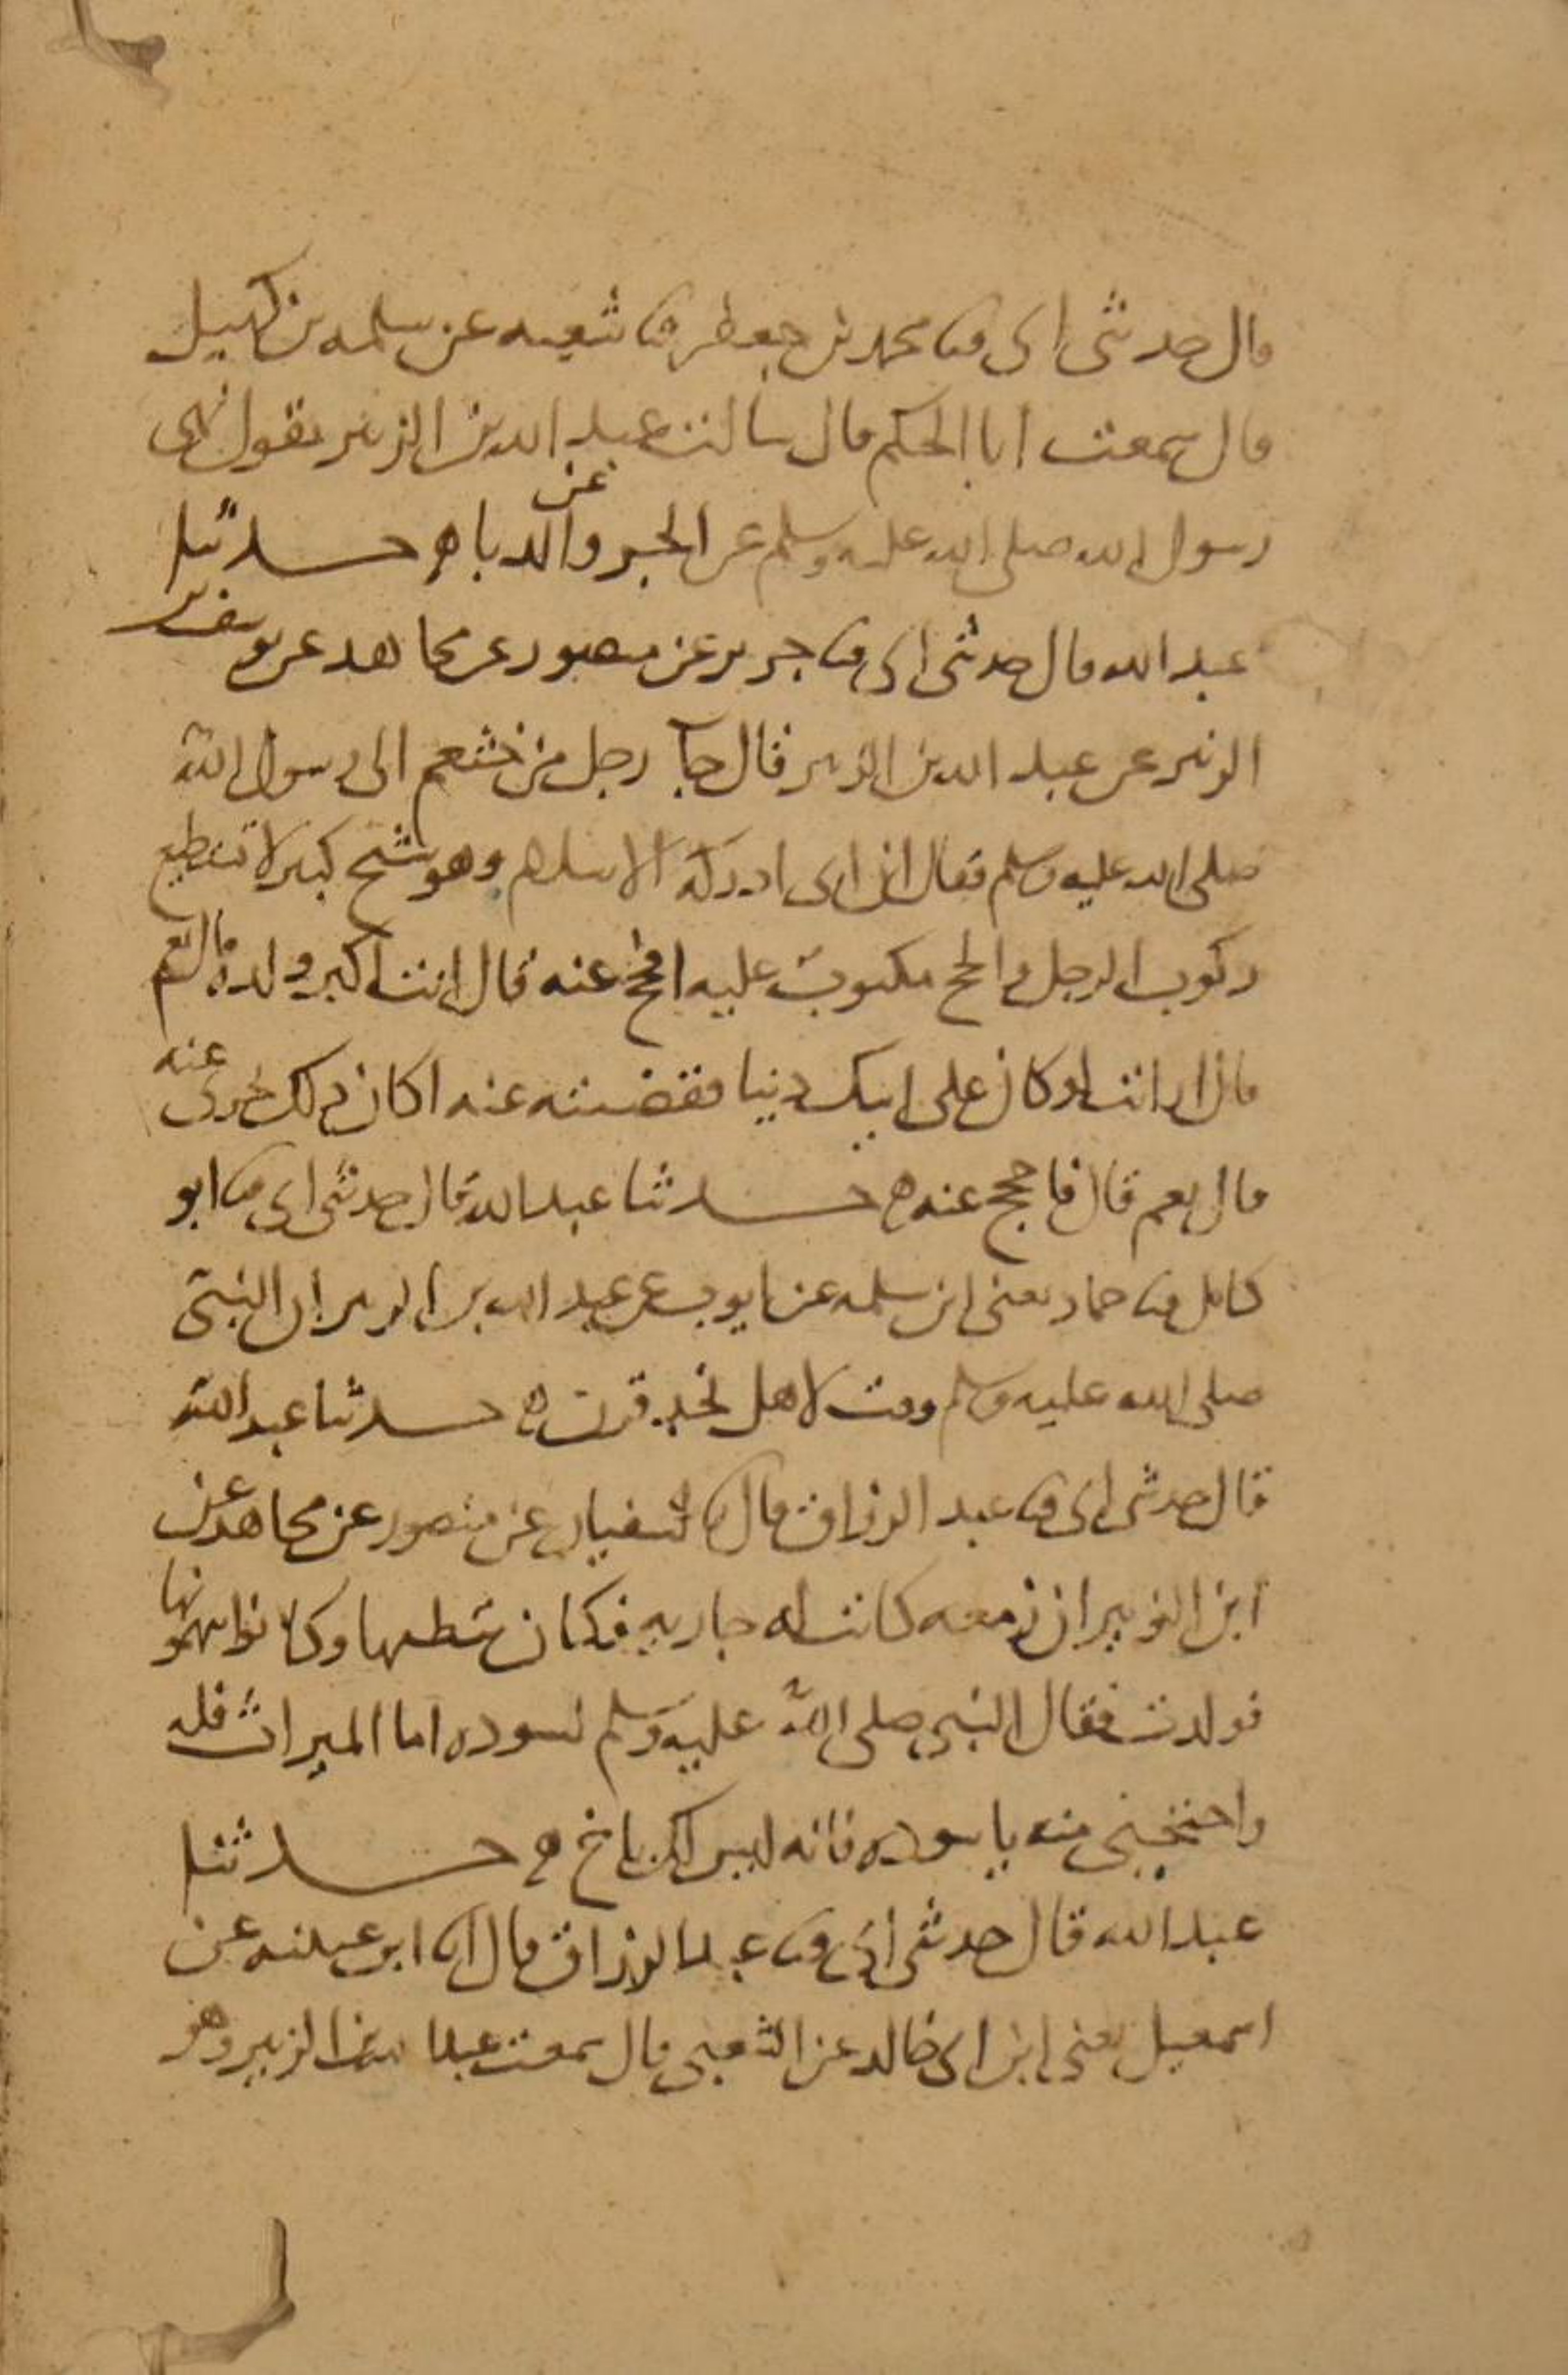 قال حدثنى ابى ثنا محمد بن جعفر ثنا شعبه عن سلمه بن كهيل
قال سمعت ابا الحكم قال سالت عبد الله بن الزبير يقول نهى
رسول الله صلى الله عليه وسلم عن الجر وعن الدباء ه حدثنا
عبد الله قال حدثنى ابى ثنا جرير عن منصور عن مجاهد عن يوسف بن
الزبير عن عبد الله بن الزبير قال جآ رجل من خثعم الى رسول الله
صلى الله عليه وسلم فقال ان ابى ادركه الاسلام وهو شيخ كبير لا يستطيع
ركوب الرحل والحج مكتوب عليه افاحج عنه قال انت اكبر ولده قال نعم
قال ارايت لو كان على ابيك دينا فقضيته عنه اكان ذلك يجزى عنه
قال نعم قال فاحجج عنه ه حدثنا عبد الله قال حدثنى ابى ثنا ابو
كامل ثنا حماد يعنى ابن سلمه عن ايوب عن عبد الله بن الزبير ان النبى
صلى الله عليه وسلم وقت لاهل نجد قرن ه حدثنا عبد الله
قال حدثنى ابى ثنا عبد الرزاق قال انا سفيان عن منصور عن مجاهد عن
ابن الزبير ان زمعه كانت له جاريه فكان يتطيها وكانوا يتهمونها
فولدت فقال النبى صلى الله عليه وسلم لسوده اما الميراث فله
واحتجبى منه يا سوده فانه ليس لك باخ ه حدثنا
عبد الله قال حدثنى ابى ثنا عبد الرزاق قال انا ابن عيينه عن
اسمعيل يعنى ابن ابى خالد عن الشعبى قال سمعت عبد الله بن الزبير وهو